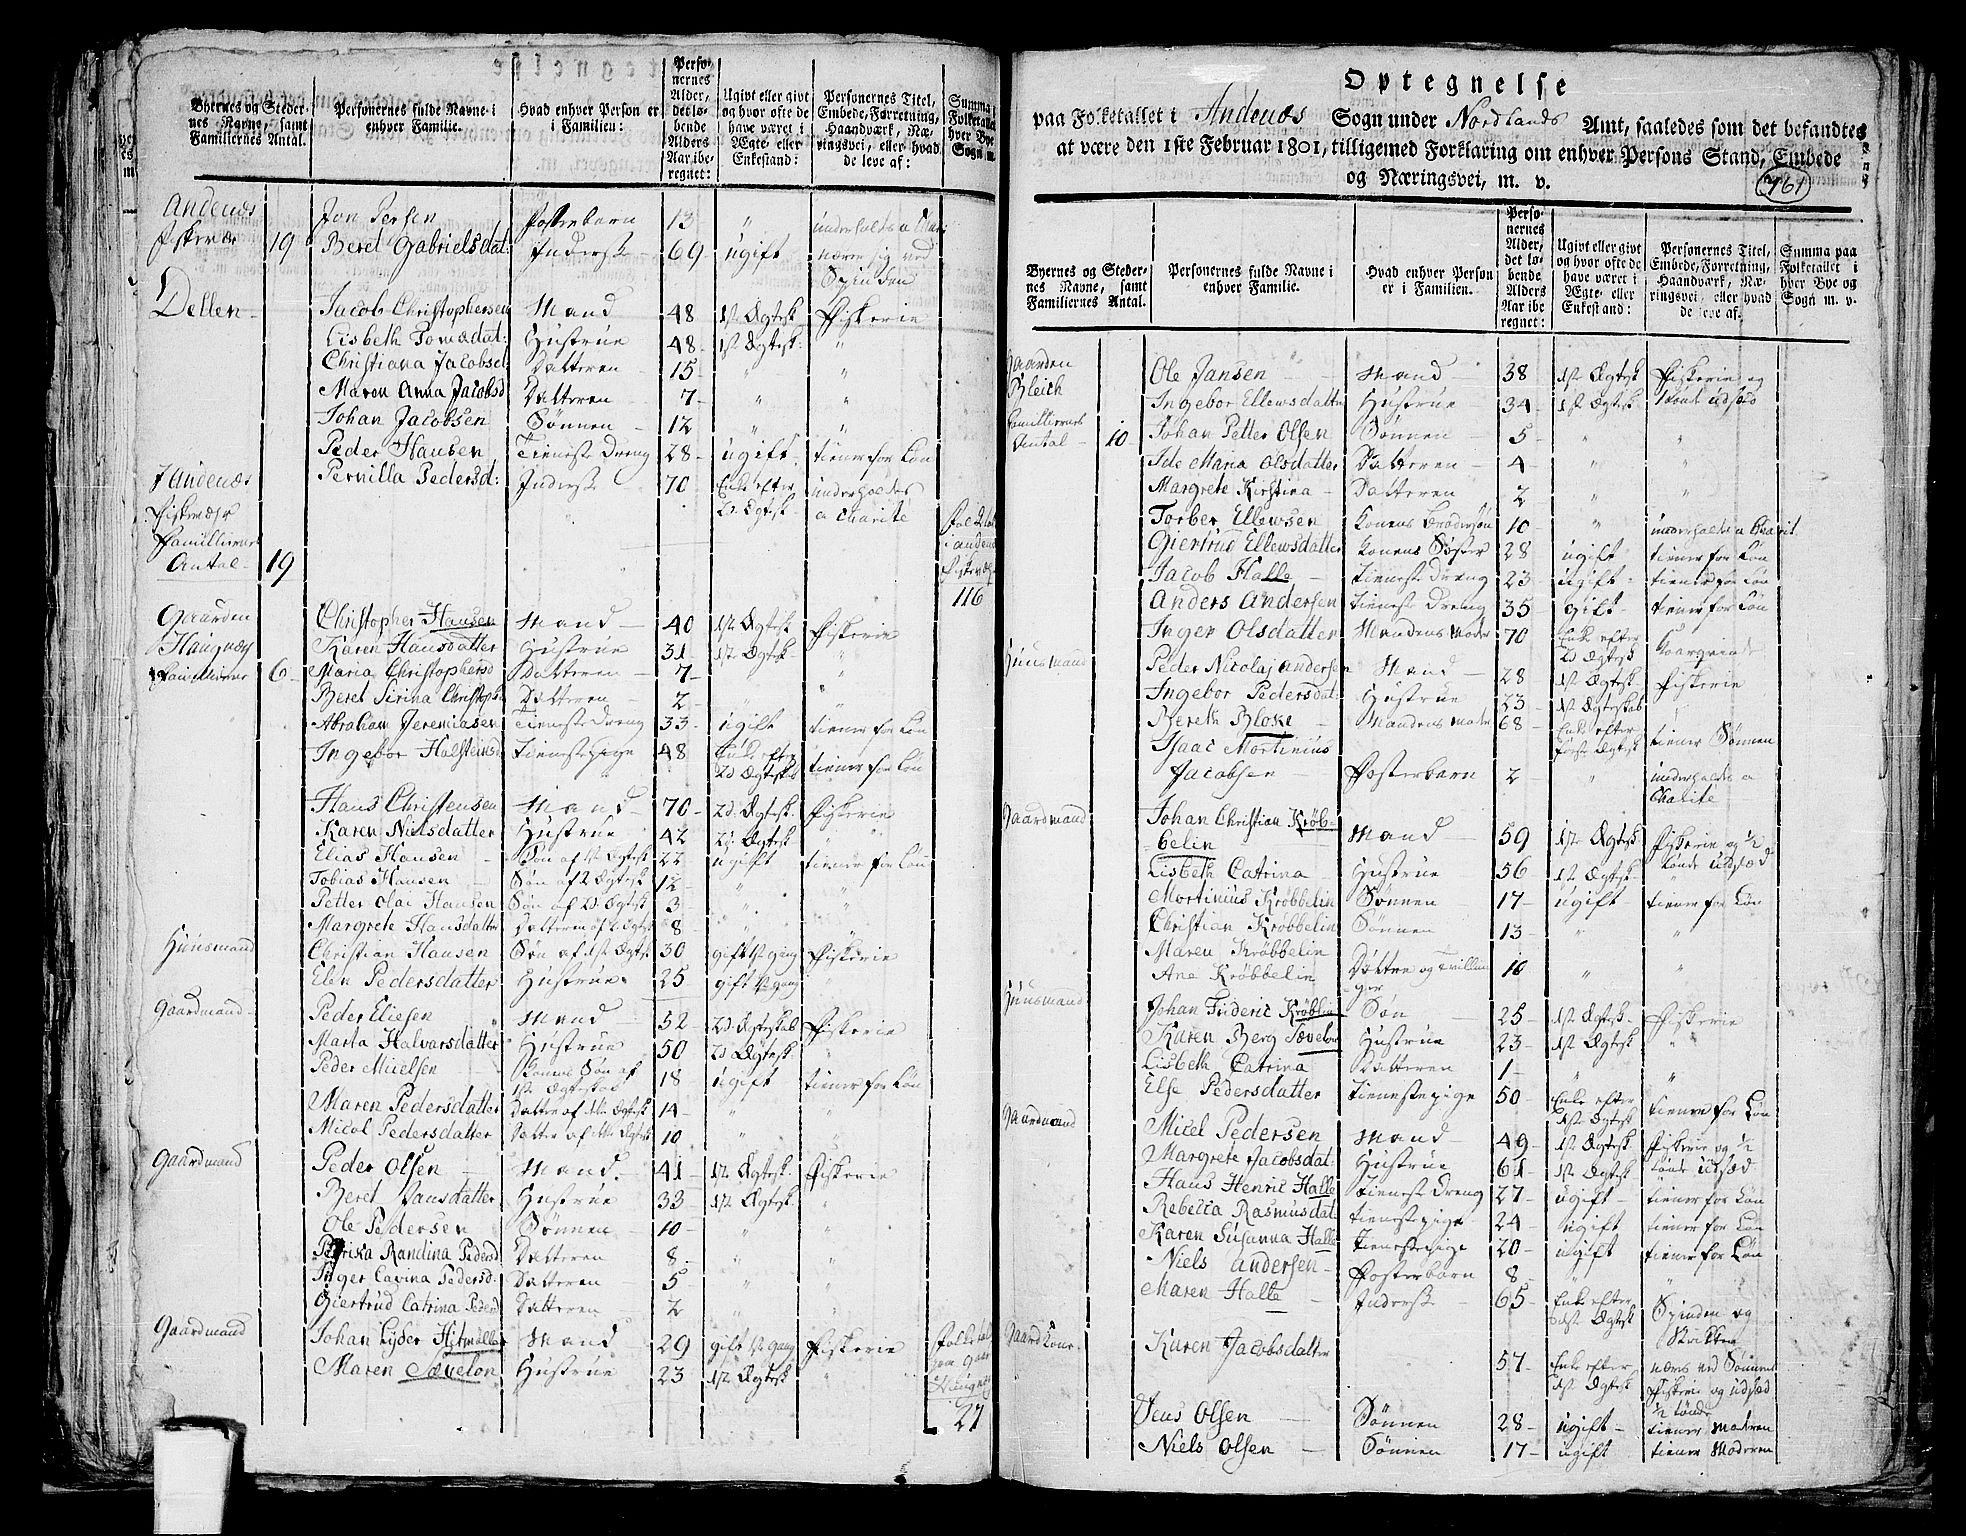 Byernes og Steder-
nes Navne, samt
Familiernes Antal.
Personernes fulde Navne i
enhver Familie.
Hvad enhver Person er
i Familien:
Perso-
nernes
Alder,
det lø-
bende
Alders
Aar ibe-
regnet:
Ugivt eller givt
og hvor ofte de
have været i
Ægte- eller
Enkestand:
Personernes Titel,
Embede, Forretning,
Haandværk, Næ-
ringsvei, eller hvad
de leve af:
Andenæs Jon Persen Fosterbarn 13
Fiskevær 19 Beret Gabrielsdat: Inderst 69 ugift nærer sig ved
Spinden
Dellen Jacob Christophersen Mand 48 1st Ægtesk Fiskerie
Lisbeth Tomædat: Hustrue 48 1st Ægtesk "
Christiana Jacobsd Datteren 15 " "
Maren Anna Jacobsd Datteren 7 " "
Johan Jacobsen Sønnen 12 " "
Peder Hansen Tieneste Dreng 28 ugift tiener for Løn
I Andenæs Pernilla Pedersd: Inderst 70 Enke efter underholdes
Fiskevær 2d Ægtesk a Charite
Familliernes
Antal 19
116
Gaarden Christopher Hansen Mand 40 1st Ægtesk Fiskerie
Haugnæs Karen Hansdatter Hustrue 31 1st Ægtesk "
Familierne 6 Maria Christophersd Datteren 7 "
Beret Sirina Christoph Datteren 2 "
Abraham Jeremiasen Tieneste Dreng 33 ugift tiener for Løn
Ingebor Halsteinsd Tienestepige 48 Enke efter tiener for Løn
2d Ægtesk
Hans Christensen Mand 70 2d Ægtesk Fiskerie
Karen Nielsdatter Hustrue 42 2d Ægtesk "
Elias Hansen Søn af 1st Ægtesk 22 ugift tiener for Løn
Tobias Hansen Søn af 2 Ægtesk 12 " "
Petter Olai Hansen Søn af 2d Ægtesk 3 " "
Margrete Hansdatter Datteren af 2 Ægtesk 8 " "
Huusmand Christian Hansen Søn af 1st Ægtesk 30 gift 1st gang Fiskerie
Elen Pedersdatter Hustrue 25 gift 1st gang "
Gaardmand Peder Eliesen Mand 52 2d Ægteskab Fiskerie
Marta Halvarsdatter Hustrue 50 2d Ægtesk "
Peder Micelsen Konens Søn af 18 ugift tiener for Løn
1st Ægteskab
Maren Pedersdatter Datter af Ægtesk 14 " "
Micol Pedersdatter Datter af Ægtesk 10 " "
Gaardmand Peder Olsen Mand 41 1st Ægtesk Fiskerie
Beret Jansdatter Hustrue 33 1st Ægtesk "
Ole Pedersen Sønnen 10 " "
Petrika Randina Pedersd Datteren 8 " "
Inger Cavina Pedersd. Datteren 5 " "
Giertrud Catrina Pedersd Datteren 2 " "
Gaardmand Johan Lyder Hitmøller Mand 29 gift 1st Gang Fiskerie
Maren Sævelon Hustrue 23 1st Ægtesk "
27
Optegnelse
paa Folketallet i Andenæs Sogn under Nordlands Amt, saaledes som det befandtes
at være den 1ste Februar 1801, tilligemed Forklaring om enhver Persons Stand, Embede
og Næringsvei, m. v.
461
Byernes og Steder-
nes Navne, samt
Familiernes Antal.
Personernes fulde Navne i
enhver Familie.
Hvad enhver Person
er i Familien.
Perso-
nernes
Alder,
det lø-
bende
Alders
Aar ibe-
regnet:
Ugivt eller givt
og hvor ofte de
have været i
Ægte- eller
Enkestand:
Personernes Titel,
Embede, Forretning,
Haandværk, Næ-
ringsvei, eller hvad
de leve af.
Summa paa
Folketallet i
hver Bye og
Sogn m. v.
Gaarden Ole Jansen Mand 38 1st Ægtesk Fiskerie og
Bleich Ingebor Ellewsdatter Hustrue 34 1st Ægtesk Udsæd
Familliernes Johan Petter Olsen Sønnen 5 " "
Antal 10 Ide Maria Olsdatter Datteren 4 " "
Margrete Kirstina Datteren 2 " "
Torber Ellewsen Konens Brodersøn 10 " underholdes a Charit
Giertrud Ellewsdatter Konens Søster 28 ugift tiener for Løn
Jacob Halle Tieneste Dreng 23 ugift tiener for Løn
Anders Andersen Tieneste Dreng 35 gift tiener for Løn
Inger Olsdatter Mandens Moder 70 Enke efter
2d Ægtesk
Huusmand Peder Nicolaj Andersen Mand 28 1st Ægtesk Fiskerie
Ingebor Pedersdat: Hustrue 23 1st Ægteskab "
Bereth Bloke Mandens Moder 68 Enke efter tiener Sønnen
første Ægtesk
Isaac Mortinius
Jacobsen Fosterbarn 2 " underholdes a
Charite
Gaardmand Johan Christian Krøb-
belin Mand 59 1st Ægtesk Fiskerie og 1/2
Tønde Udsæd
Lisbeth Catrina Hustrue 56 1st Ægtesk "
Mortinius Krøbbelin Sønnen 17 ugift tiener for Løn
Christian Krøbbelin Sønnen 13 " "
Maren Krøbbelin
Ane Krøbbelin Døttre og Tvillin- 10 " "
ger
Huusmand Johan Frideric Krøblin Søn 25 1st Ægtesk Fiskerie
Karen Berg Sævelon Hustrue 23 1st Ægtesk "
Lisbeth Catrina Datteren 1 " "
Else Pedersdatter Tienestepige 50 Enke efter tiener for Løn
1st Ægtesk
Gaardmand Micel Pedersen Mand 49 1st Ægtesk Fiskerie og 1/2
Margrete Jacobsdat: Hustrue 61 1st Ægtesk Tønde Udsæd
Hans Henric Halle Tieneste Dreng 27 ugift tiener for Løn
Rebecca Rasmusdat: Tienestepige 24 ugift tiener for Løn
Karen Susanna Halle Tienestepige 20 ugift tiener for Løn
Niels Andersen Fosterbarn 8 " "
Maren Halle Inderst 65 Enke efter Spinden og
1st Ægtesk Strikken
Gaard Kone Karen Jacobsdatter 57 Enke efter næres ved Sønnens
1st Ægtesk Fiskerie og Udsæd
1/2 Tønde
Jens Olsen Sønnen 28 ugift tiener Moderen
Niels Olsen Sønnen 17 ugift tiener Moderen